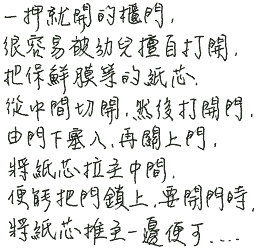 一押就開的櫃門,
很容易被幼兒擅自打開.
把保鮮膜等的紙芯.
從中間切開,然後打開門,
由門下塞入,再關上門,
將紙芯拉至中間.
便能把門鎖上,要開門時,
將紙芯推至一邊便可....